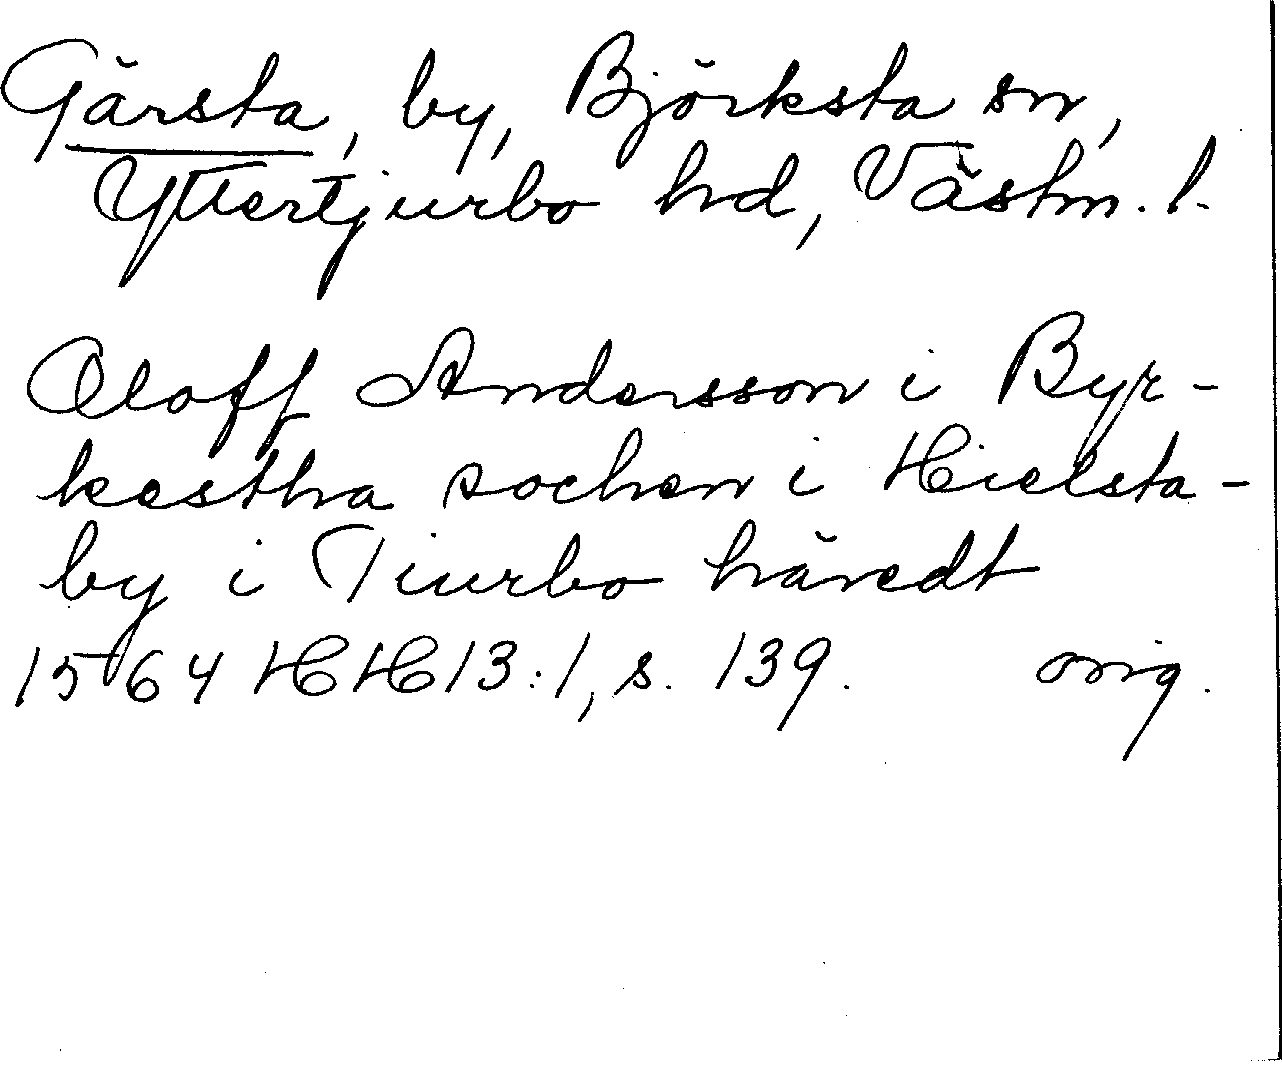 Gärsta, by, Björksta sn,
Yttertjurbo hd, Västm. l.
Oloff Andersson i Byr-
kestha sochen i Hielsta-
by i Tiurbo häredt
1564 HH 13:1, s. 139. orig.